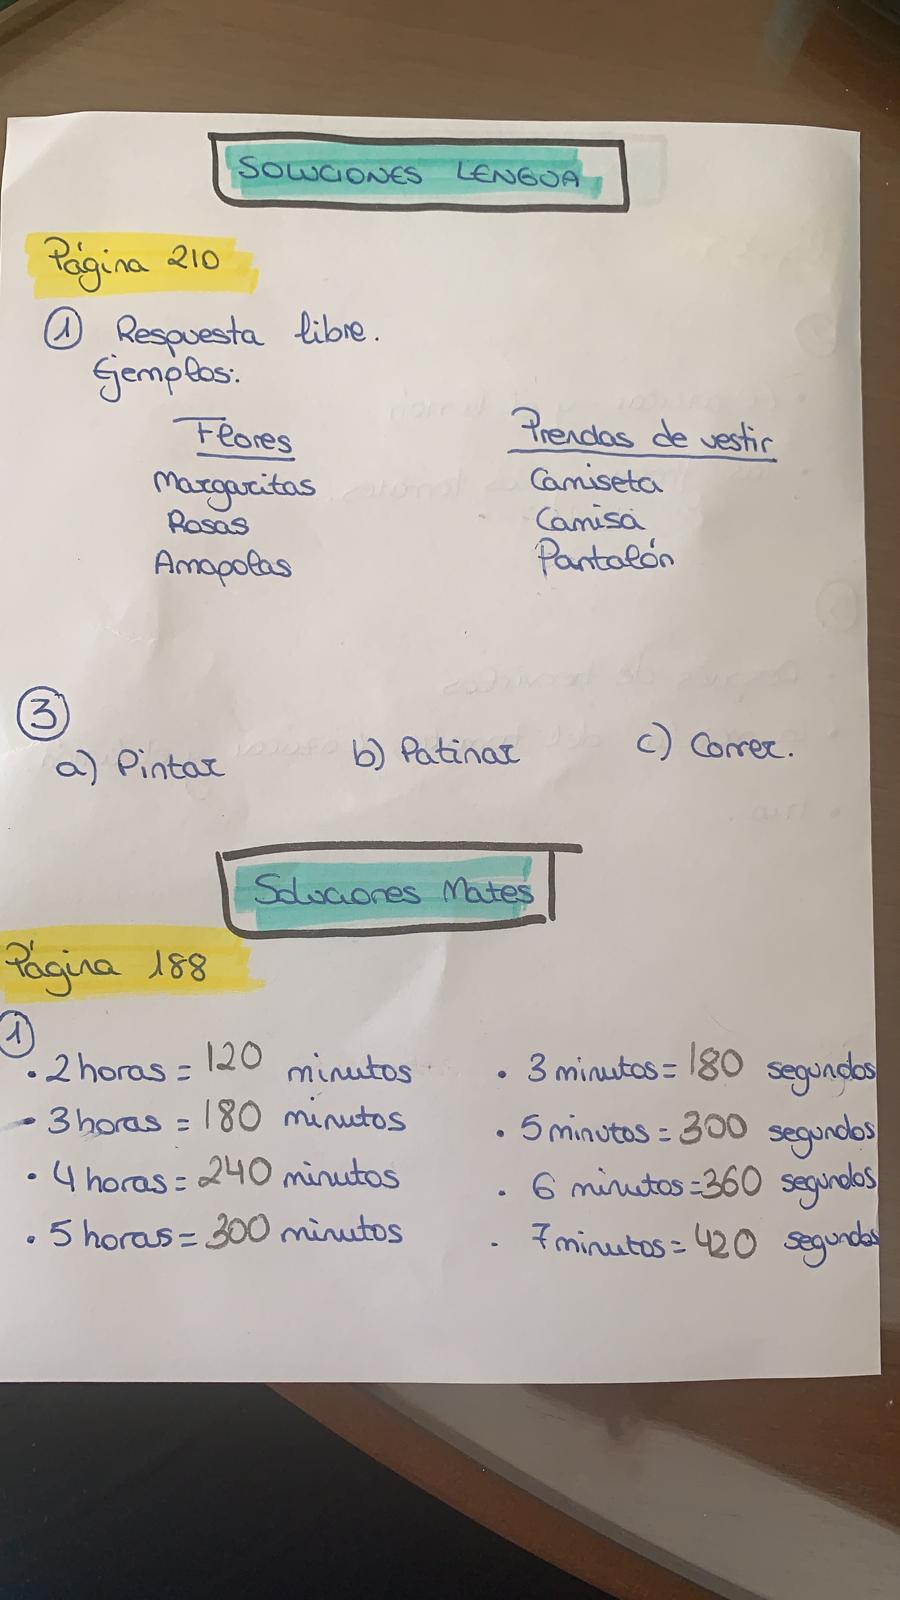 SOLUCIONES LENGUA
Página 210
1 Respuesta libre.
Ejemplos:
Flores Prendas de vestir
Margaritas Camiseta
Rosas Camisa
Amapolas Pantalón
3
a) Pintar b) Patinar c) Correr.
Soluciones Mates
Página 188
1
• 2 horas = 120 minutos • 3 minutos = 180 segundos
- 3 horas = 180 minutos • 5 minutos = 300 segundos
• 4 horas = 240 minutos • 6 minutos = 360 segundos
• 5 horas = 300 minutos • 7 minutos = 420 segundos